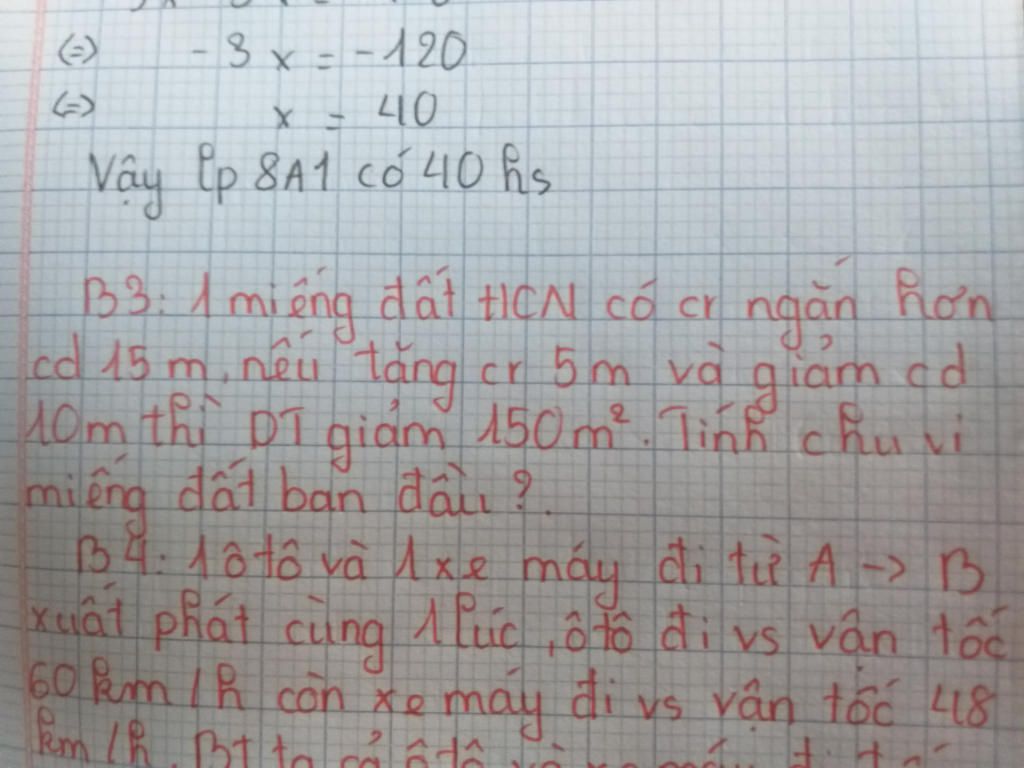 (=) - 3 x = -120
(=) x = 40
Vậy lp 8A1 có 40 hs
B3: 1 miếng đất HCN có cr ngắn hơn
cd 15 m, nếu tăng cr 5m và giảm cd
10m thì DT giảm 150m². Tính chu vi
miếng đất ban đầu?
B4: 1 ôtô và 1 xe máy đi từ A -> B
xuất phát cùng 1 lúc, ôtô đi vs vận tốc
60 km/h còn xe máy đi vs vận tốc 48
km/h. BT